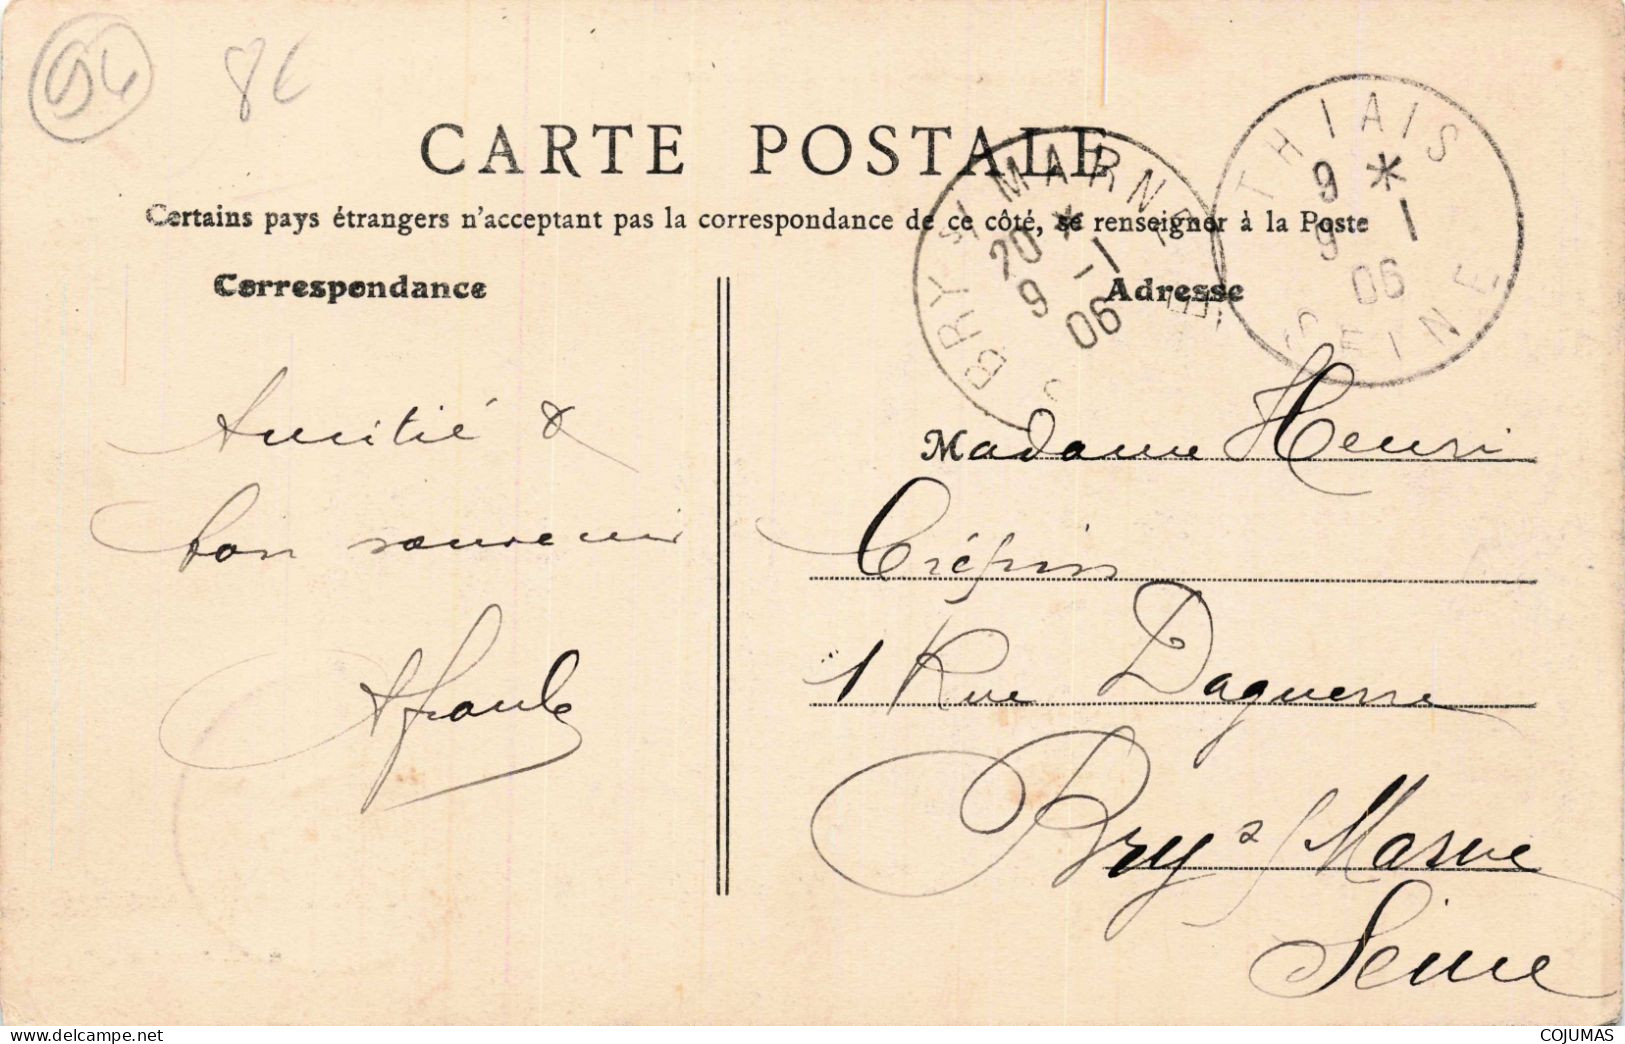 94
8€
CARTE POSTALE
Certains pays étrangers n'acceptant pas la correspondance de ce côté, se renseigner à la Poste
THIAIS
9 *
9 1
06
SEINE
BRY S/ MARNE
20 *
9 - 1
06
S
Correspondance
Amitié &
bon souvenir
Adresse
Madame Henri
Crépin
1 Rue Daguerre
Bry s/ Marne
Seine
www.delcampe.net
COJUMAS